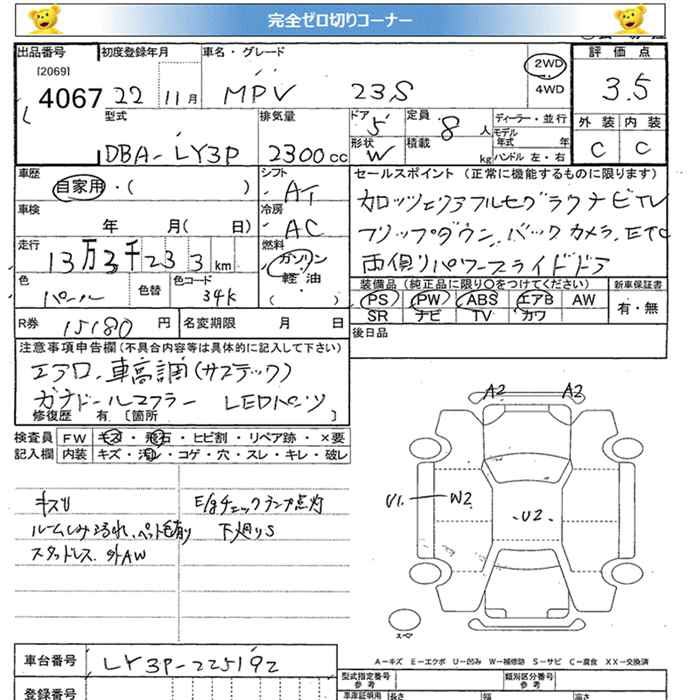 完全ゼロ切りコーナー
出品番号 初度登録年月 車名・グレード 評価点
[2069]
4067 22 11月 MPV 23S 2WD 4WD 3.5
型式 排気量 ドア 5 定員 8人 ディーラー・並行 外装 内装
形状 W 積載 kg モデル年式 年 ハンドル 左・右
DBA-LY3P 2300cc C C
車歴 シフト セールスポイント (正常に機能するものに限ります)
自家用・( ) AT カロッツェリアフルセグラクナビTV
車検 冷房 フリップダウン,バックカメラ,ETC
年 月( 日) AC 両側パワースライドドア
走行 燃料
13万3千233km ガソリン 軽油 ( )
色 色替 色コード 装備品 (純正品に限り○をつけてください) 新車保証書
パール 34K PS PW ABS エアB AW 有・無
SR ナビ TV カワ
R券 15180円 名変期限 月 日 後日品
注意事項申告欄 (不具合内容等は具体的に記入して下さい)
エアロ.車高調(サステック)
ガナドールマフラー LEDパーツ
修復歴 有 〔箇所 〕
検査員 FW キズ・飛石・ヒビ割・リペア跡・×要
記入欄 内装 キズ・汚レ・コゲ・穴・スレ・キレ・破レ
キズU E/gチェックランプ点灯
ルームしみよごれ.ペット毛有り 下廻りS
スタッドレス.外AW
A2 A2
U1 W2 U2
スペア
A-キズ E-エクボ U-凹み W-補修跡 S-サビ C-腐食 XX-交換済
車台番号 LY3P-225192
型式指定番号 参考 類別区分番号 参考
登録番号 車庫証明用 長さ 幅 高さ